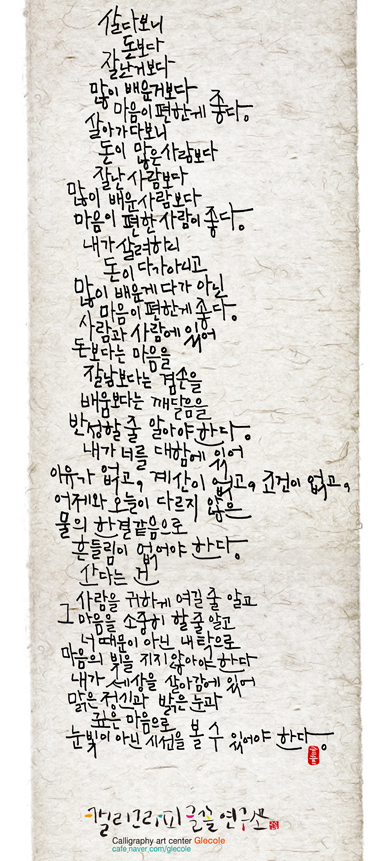 살다보니
돈보다
잘난거보다
많이 배운거보다
마음이 편한게 좋다.
살아가다보니
돈이 많은 사람보다
잘난 사람보다
많이 배운 사람보다
마음이 편한 사람이 좋다.
내가 살려하니
돈이 다가 아니고
많이 배운게 다가 아닌
마음이 편한게 좋다.
사람과 사람에 있어
돈보다는 마음을
잘남보다는 겸손을
배움보다는 깨달음을
반성할 줄 알아야 한다.
내가 너를 대함에 있어
이유가 없고, 계산이 없고, 조건이 없고,
어제와 오늘이 다르지 않은
물의 한결같음으로
흔들림이 없어야 한다.
산다는 건
사람을 귀하게 여길 줄 알고
그 마음을 소중히 할 줄 알고
너 때문이 아닌 내 탓으로
마음의 빚을 지지 않아야 한다
내가 세상을 살아감에 있어
맑은 정신과 밝은 눈과
깊은 마음으로
눈빛이 아닌 시선을 볼 수 있어야 한다.
캘리그라피 글꼴 연구소
Calligraphy art center Glecole
cafe.naver.com/glecole